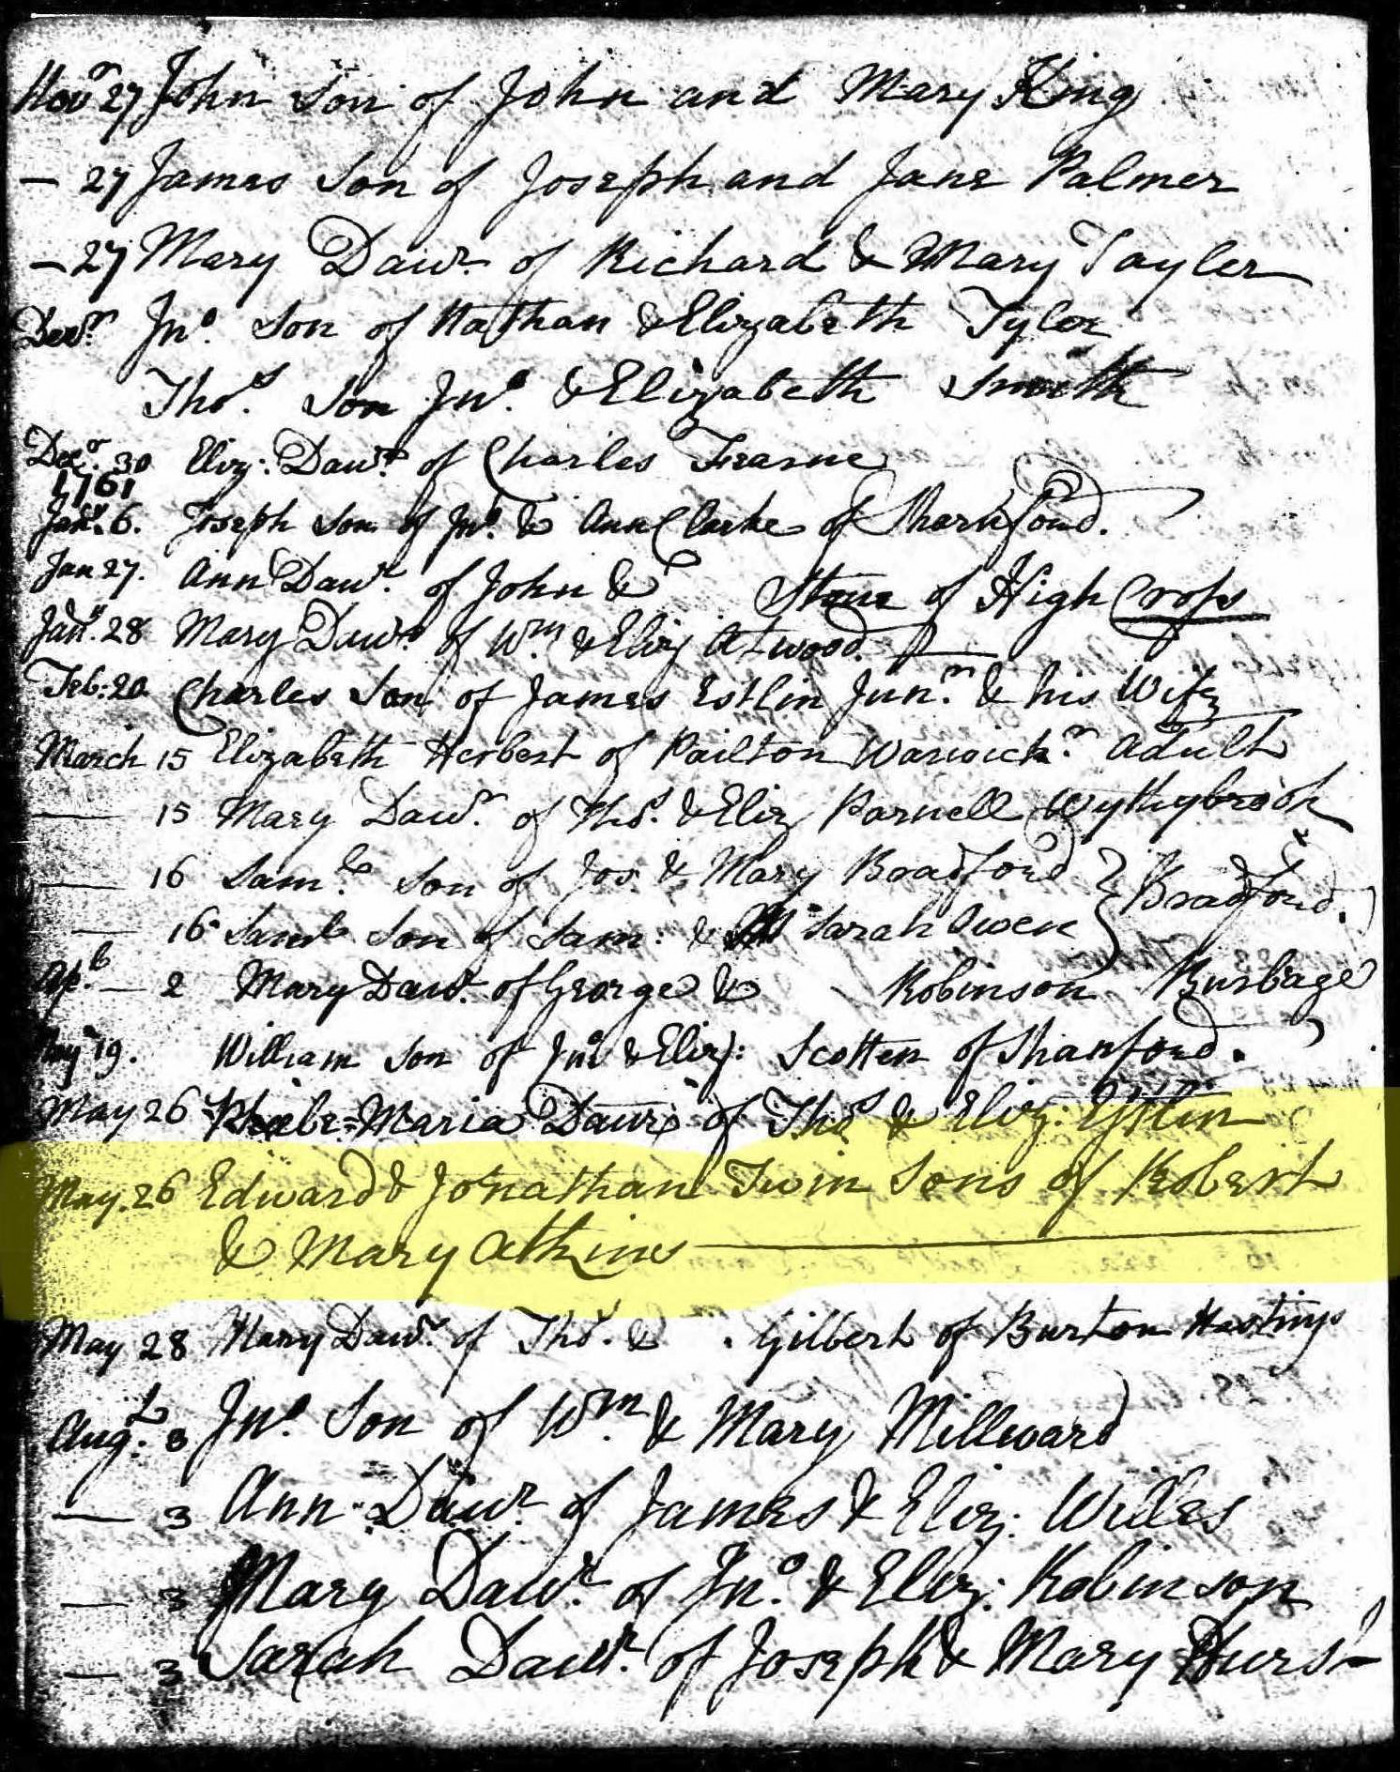 Novr 27 John Son of John and Mary King
— 27 James Son of Joseph and Jane Palmer
— 27 Mary Dawr. of Richard & Mary Tayler
Decr. Jno. Son of Nathan & Elizabeth Tyler
Thos. Son Jno. & Elizabeth Smith
Decr. 30 Eliz: Dawr. of Charles Fearne
1761
Jany. 6. Joseph Son of Jno. & Ann Clarke of Sharnford.
Jan 27. Ann Dawr. of John & Stone of High Cross
Jany. 28 Mary Dawr. of Wm. & Eliz Atwood.
Feb: 20 Charles Son of James Estlin Junr. & his Wife
March 15 Elizabeth Herbert of Pailton Warwickr. Adult
— 15 Mary Dawr. of Thos. & Eliz Parnell Wythybrook
— 16 Saml. Son of Jos. & Mary Bradford } Bradford.
— 16 Saml. Son of Sam: & Sarah Owen
Apl. — 2 Mary Dawr. of George & Robinson Burbage
May 19. William Son of Jno. & Eliz: Scotten of Sharnford.
May 26 Phebe=Maria Dawr. of Thos. & Eliz: Estlin
May. 26 Edward & Jonathan Twin Sons of Robert
& Mary Atkins —
May 28 Mary Dawr. of Thos. & . Gilbert of Burton Hastings
Augt. 3 Jno. Son of Wm. & Mary Millward
— 3 Ann Dawr. of James & Eliz: Willes
— 3 Mary Dawr. of Jno. & Eliz: Robinson
— 3 Sarah Dawr. of Joseph & Mary Hurst